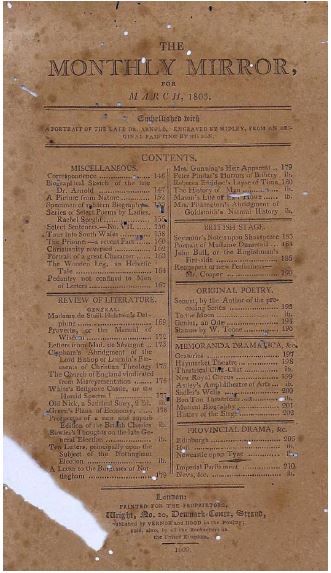 THE
MONTHLY MIRROR,
FOR
MARCH, 1803.
Embellished with
A PORTRAIT OF THE LATE DR. ARNOLD, ENGRAVED BY RIDLEY, FROM AN ORI-
GINAL PAINTING BY
CONTENTS.
MISCELLANEOUS.
Correspondence 146
Biographical Sketch of the late
Dr. Arnold 147
A Picture from Nature 152
Specimen of
Series of Select Poems by Ladies,
Rachel Speght 155
Select Sentences—No. VII. 156
Tour into South Wales 158
The Prison—a recent Fact 160
Christianity revived 162
Portrait of a great Character 163
The Wooden Leg, an Helvetic
Tale 164
Pedantry not confined to Men
of Letters 167
REVIEW OF LITERATURE.
GENERAL.
Madame de Stael Holstein's Del-
phine 169
Proverbs, or the Manual of
Wisdom 172
Letters from Mad. de Sévigné 173
Clapham's Abridgment of the
Lord Bishop of Lincoln's Ele-
ments of Christian Theology 175
The Church of England vindicated
from Misrepresentation 176
White's Religious Castle, or the
Horrid Spectre
Old Nick, a Satirical Story, 2d Ed.
Green's Plans of Economy, 178
Prospectus of a new and superb
Edition of the British Classics ib.
Bowles's Thoughts on the late Ge-
neral Election ib.
Ten Letters, principally upon the
Subject of the Nottingham
Election ib.
A Letter to the Burgesses of Not-
tingham 179
Mrs. Gunning's Heir Apparent 179
Peter Pindar's Horrors of Bribery ib.
Edgeworth
The History of Man ib.
Mason's Life of Lord Howe ib.
Mrs. Pilkington's Abridgment of
Goldsmith's Natural History ib.
BRITISH STAGE.
Seymour's Notes upon Shakspeare 183
Portrait of Madame Dazencourt 184
John Bull, or the Englishman's
Fire-side 185
Retrospect of new Performers—
Mr. Cooper 190
ORIGINAL POETRY.
Sonnet, by the Author of the pre-
ceding Series 195
To the Moon ib.
Genius, an Ode 194
Stanzas by W. Toone 195
MEMORANDA DRAMATICA, &c.
Oratorios 197
Haymarket Theatre 198
Theatrical Chit-Chat ib.
New Royal Circus 199
Astley's Amphitheatre of Arts ib.
Sadler's Wells 200
Bon Ton Theatricals ib.
Musical Biography 201
History of the Stage 202
PROVINCIAL DRAMA, &c.
Edinburgh 205
Hull ib.
Newcastle upon Tyne ib.
Imperial Parliament 210
News, &c. ib.
London:
PRINTED FOR THE PROPRIETORS,
Wright, No. 20, Denmark-Court, Strand,
Published by VERNOR and HOOD in the Poultry;
sold, also, by all the Booksellers in
the United Kingdom.
1803.